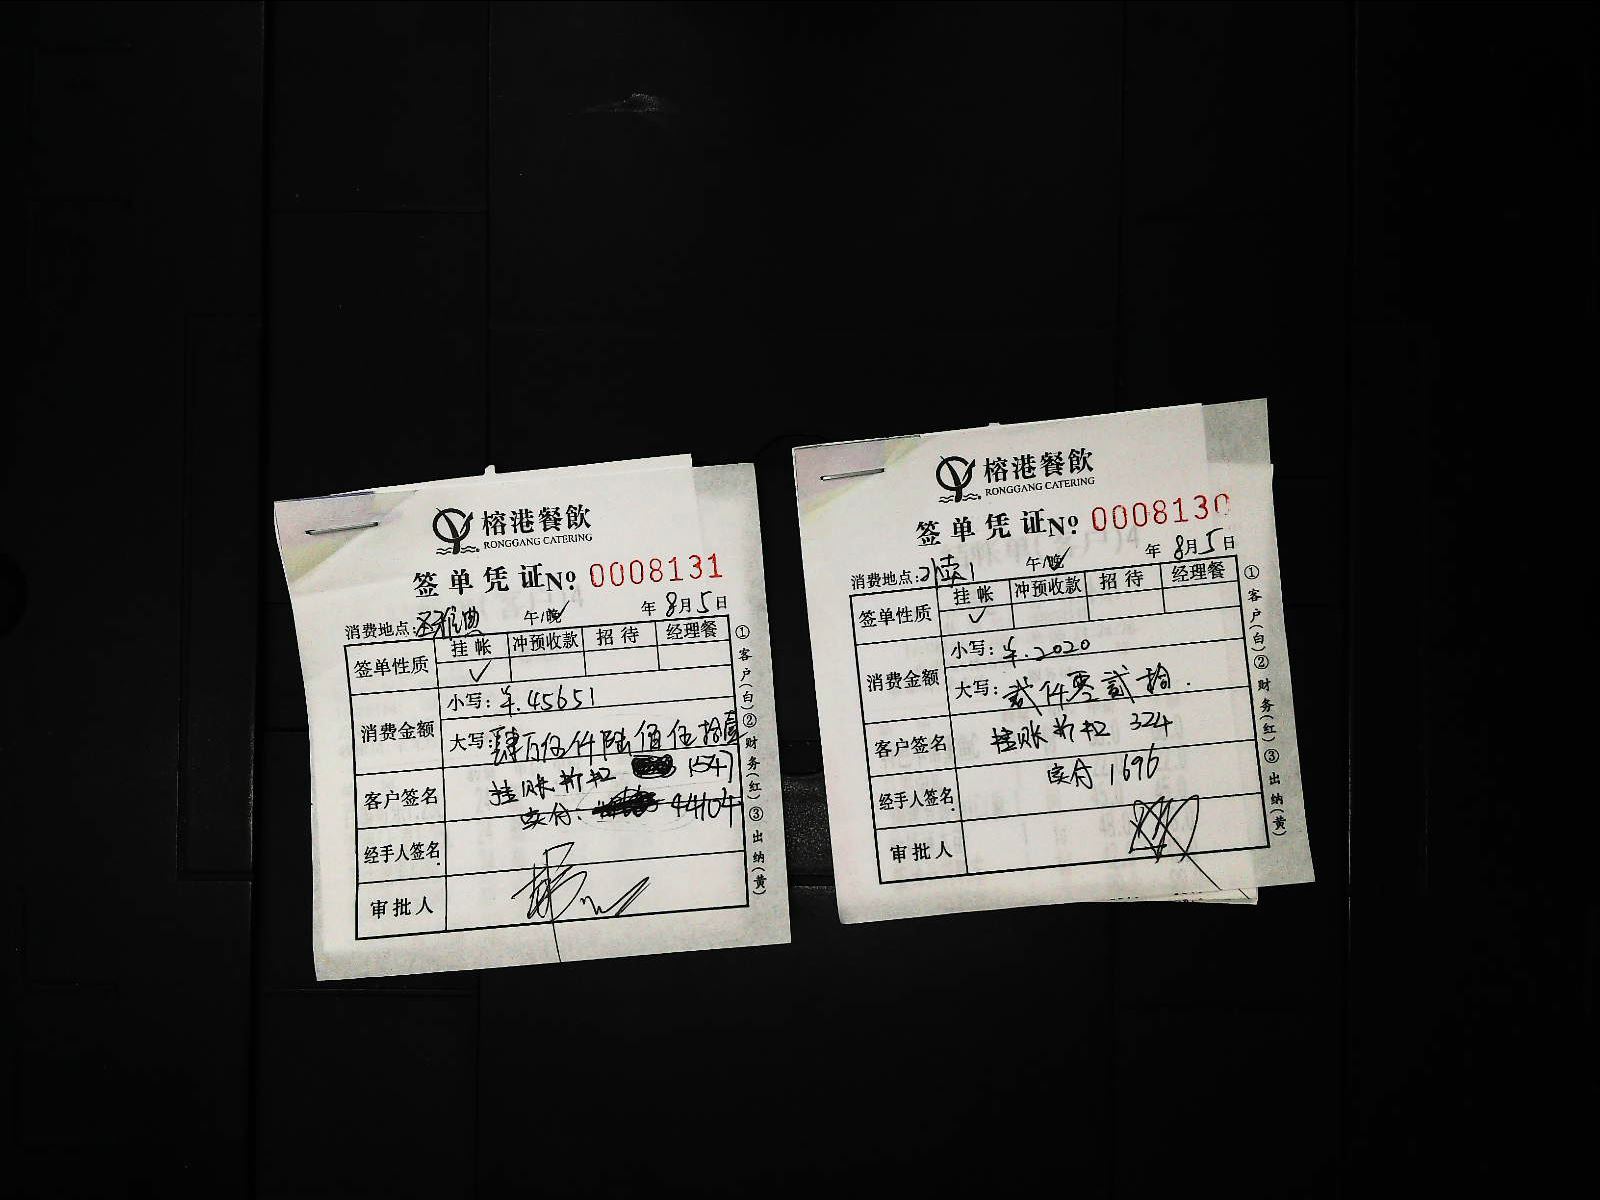 榕港餐飲
RONGGANG CATERING
签单凭证№ 0008131
午/晚✓ 年8月5日
消费地点:圣雅典
签单性质 挂帐 冲预收款 招待 经理餐
✓
消费金额 小写:¥.45651
大写:肆万伍仟陆佰伍拾壹
客户签名 挂账折扣 1547
实付. 44104
经手人签名
审批人
①客户(白)②财务(红)③出纳(黄)
榕港餐飲
RONGGANG CATERING
签单凭证№ 0008130
午/晚✓ 年8月5日
消费地点:
签单性质 挂帐 冲预收款 招待 经理餐
✓
消费金额 小写:¥.2020
大写:贰仟零贰拾.
客户签名 挂账折扣 324
经手人签名 实付 1696
审批人
①客户(白)②财务(红)③出纳(黄)